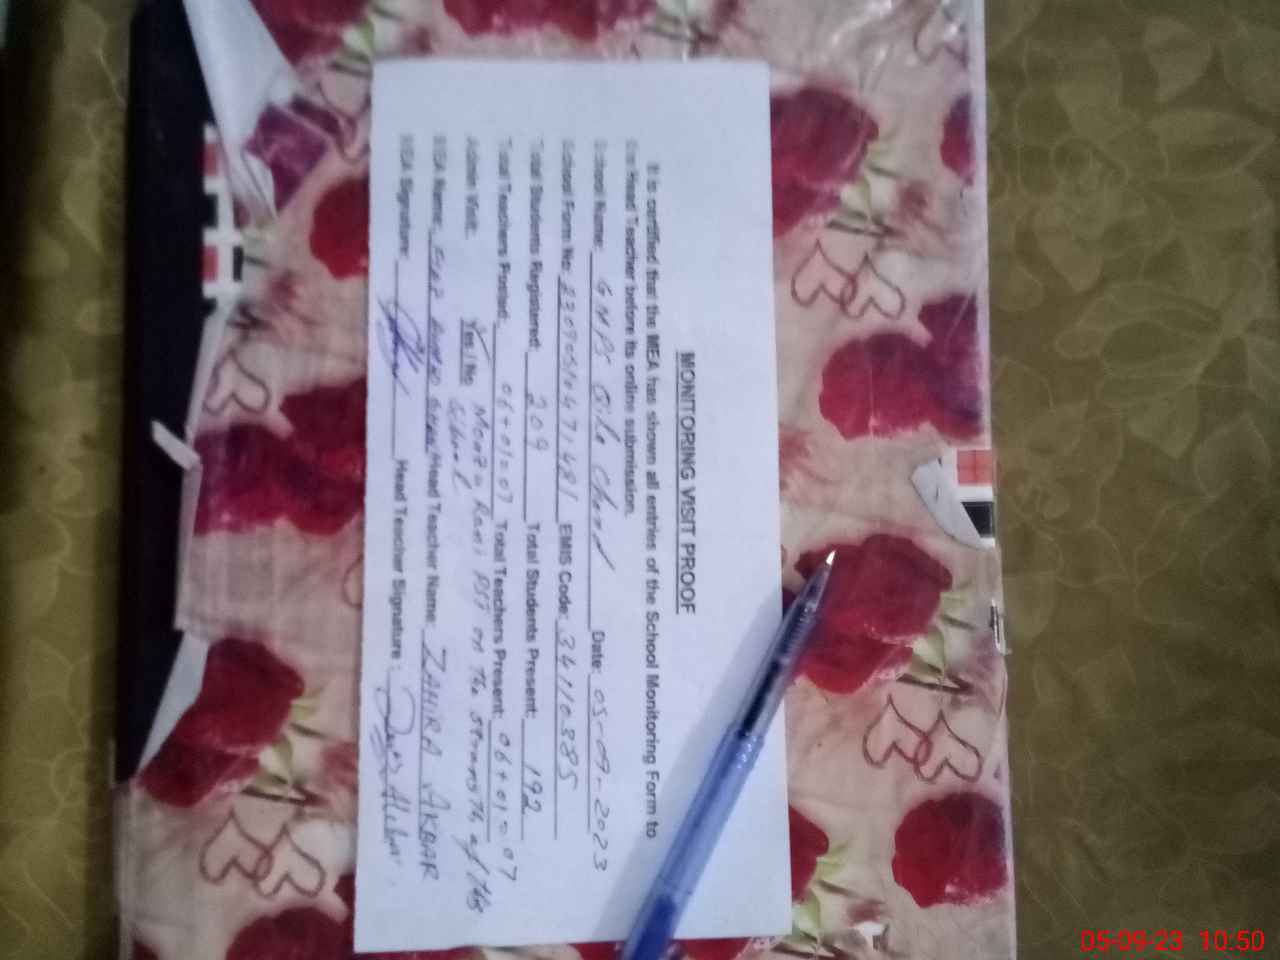 MONITORING VISIT PROOF
It is certified that the MEA has shown all entries of the School Monitoring Form to
the Head Teacher before its online submission.
School Name: GMPS Chand Date: 05-09-2023
School Form No: EMIS Code: 34110385
Total Students Registered: 209 Total Students Present: 192
Total Teachers Posted: 06+01=07 Total Teachers Present: 06+01=07
Admin Visit: Yes / No Rani PST on the strength of this
School
MEA Name: Head Teacher Name: ZAHIRA AKBAR
MEA Signature: Head Teacher Signature:
05-09-23 10:50